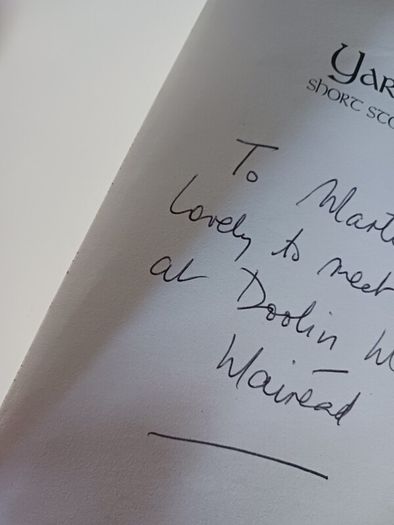 Yar
short sto
To Mart
Lovely to meet
at Doolin W
Mairéad